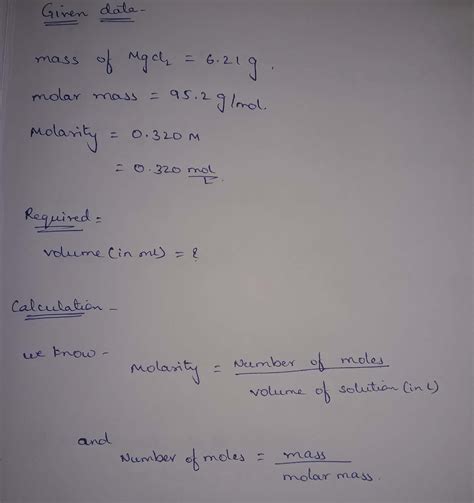 Given data-
mass of MgCl₂ = 6.21 g.
molar mass = 95.2 g/mol.
Molarity = 0.320 M
= 0.320 mol/L
Required =
volume (in mL) = ?
Calculation -
we know -
Molarity = Number of moles / volume of solution (in L)
and
Number of moles = mass / molar mass.